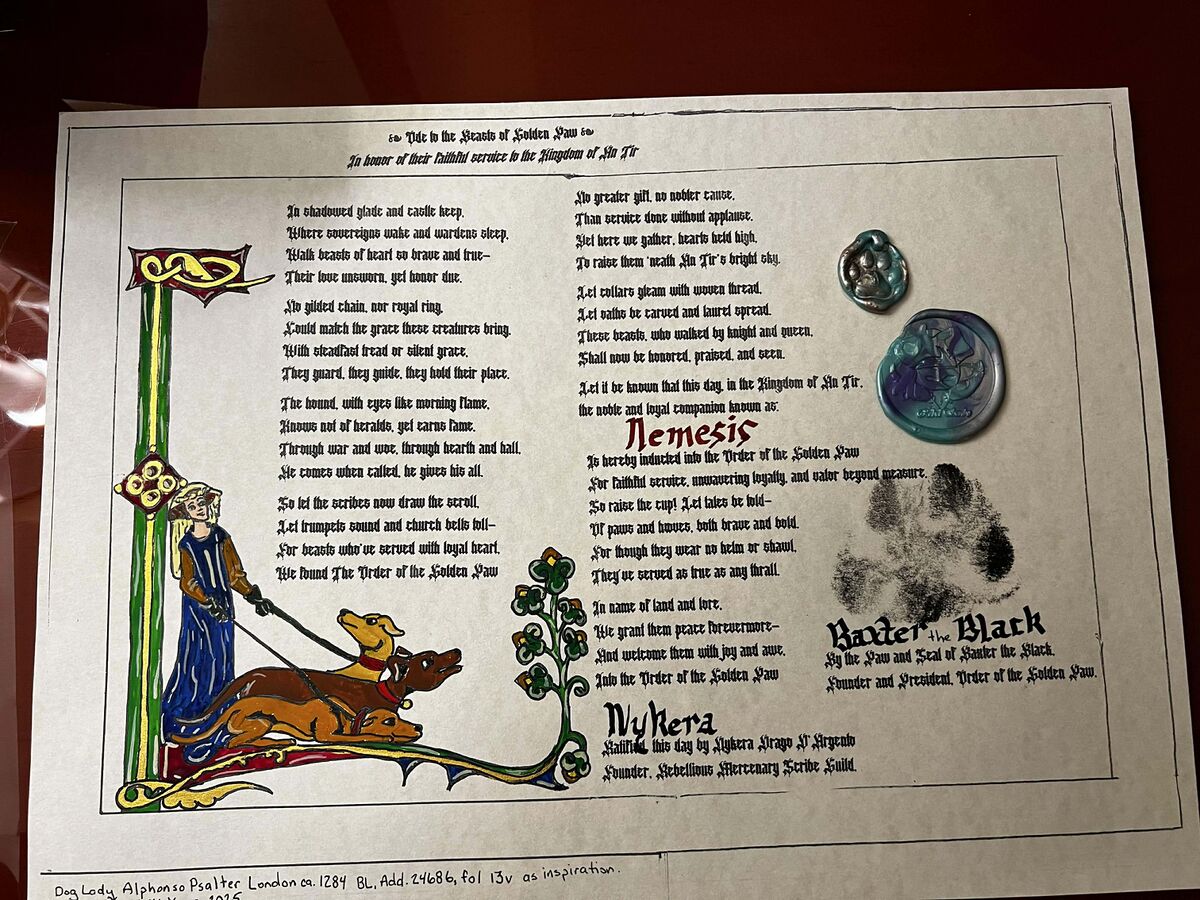 Ode to the Beasts of Golden Paw
In honor of their faithful service to the Kingdom of An Tir
In shadowed glade and castle keep,
Where sovereigns wake and wardens sleep,
Walk beasts of heart so brave and true—
Their love unsworn, yet honor due.
No gilded chain, nor royal ring,
Could match the grace these creatures bring.
With steadfast tread or silent grace,
They guard, they guide, they hold their place.
The hound, with eyes like morning flame,
Knows not of heralds, yet earns fame.
Through war and woe, through hearth and hall,
He comes when called, he gives his all.
So let the scribes now draw the scroll,
Let trumpets sound and church bells toll—
For beasts who've served with loyal heart,
We found The Order of the Golden Paw
No greater gift, no nobler cause,
Than service done without applause.
Yet here we gather, hearts held high,
To raise them 'neath An Tir's bright sky.
Let collars gleam with woven thread,
Let oaths be carved and laurel spread.
These beasts, who walked by knight and queen,
Shall now be honored, praised, and seen.
Let it be known that this day, in the Kingdom of An Tir,
the noble and loyal companion known as:
Nemesis
Is hereby inducted into the Order of the Golden Paw
For faithful service, unwavering loyalty, and valor beyond measure.
So raise the cup! Let tales be told—
Of paws and hooves, both brave and bold.
For though they wear no helm or shawl,
They've served as true as any thrall.
In name of land and lore,
We grant them peace forevermore—
And welcome them with joy and awe,
Into the Order of the Golden Paw
Nykera
Ratified this day by Nykera Drago D'Argento
Founder, Rebellious Mercenary Scribe Guild.
Baxter the Black
By the Paw and Seal of Baxter the Black,
Founder and President, Order of the Golden Paw.
Dog Lady Alphonso Psalter London ca. 1284 BL, Add. 24686, fol 13v as inspiration.
2025